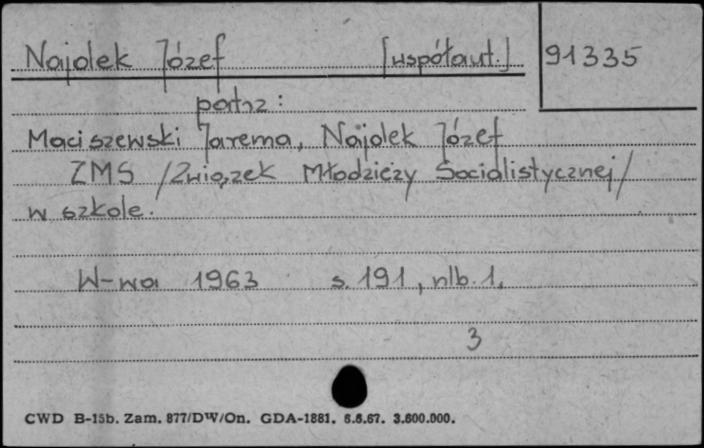 Najolek Józef [współaut.] 91335
patrz:
Maciszewski Jarema, Najolek Józef
ZMS /Związek Młodzieży Socialistycznej/
w szkole.
W-wa 1963 s. 191, nlb. 1.
3
CWD B-15b. Zam. 877/DW/On. GDA-1881. 6.6.67. 3.600.000.